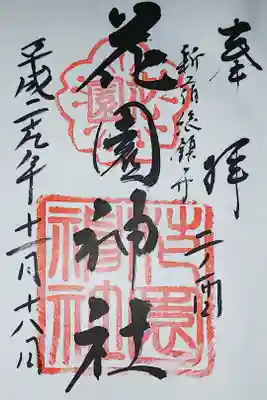 奉拝
二ノ酉
新宿総鎮守
花園神社
花園神社
平成二十九年十一月十八日